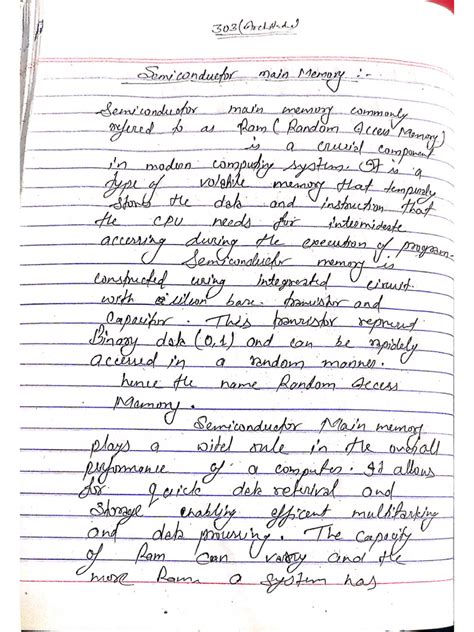 303(
Semiconductor main Memory :-
Semiconductor main memory commonly
refered to as Ram (Random Access Memory)
is a crucial component
in modern computing system. It is a
type of volatile memory that temporaly
stores the data and instruction that
the CPU needs for intermidate
accessing during the execution of program.
Semiconductor memory is
constructed using integrated circuit
with silicon base transistor and
Capacitor. This transistor represent
Binary data (0,1) and can be rapidely
accessed in a random manner.
hence the name Random Access
Memory.
Semiconductor Main memory
plays a vitel rule in the overall
performance of a computer. It allows
for quick data retrival and
Storage enabling efficent multitasking
and data proccessing. The Capacity
of Ram can vary and the
more Ram a system has